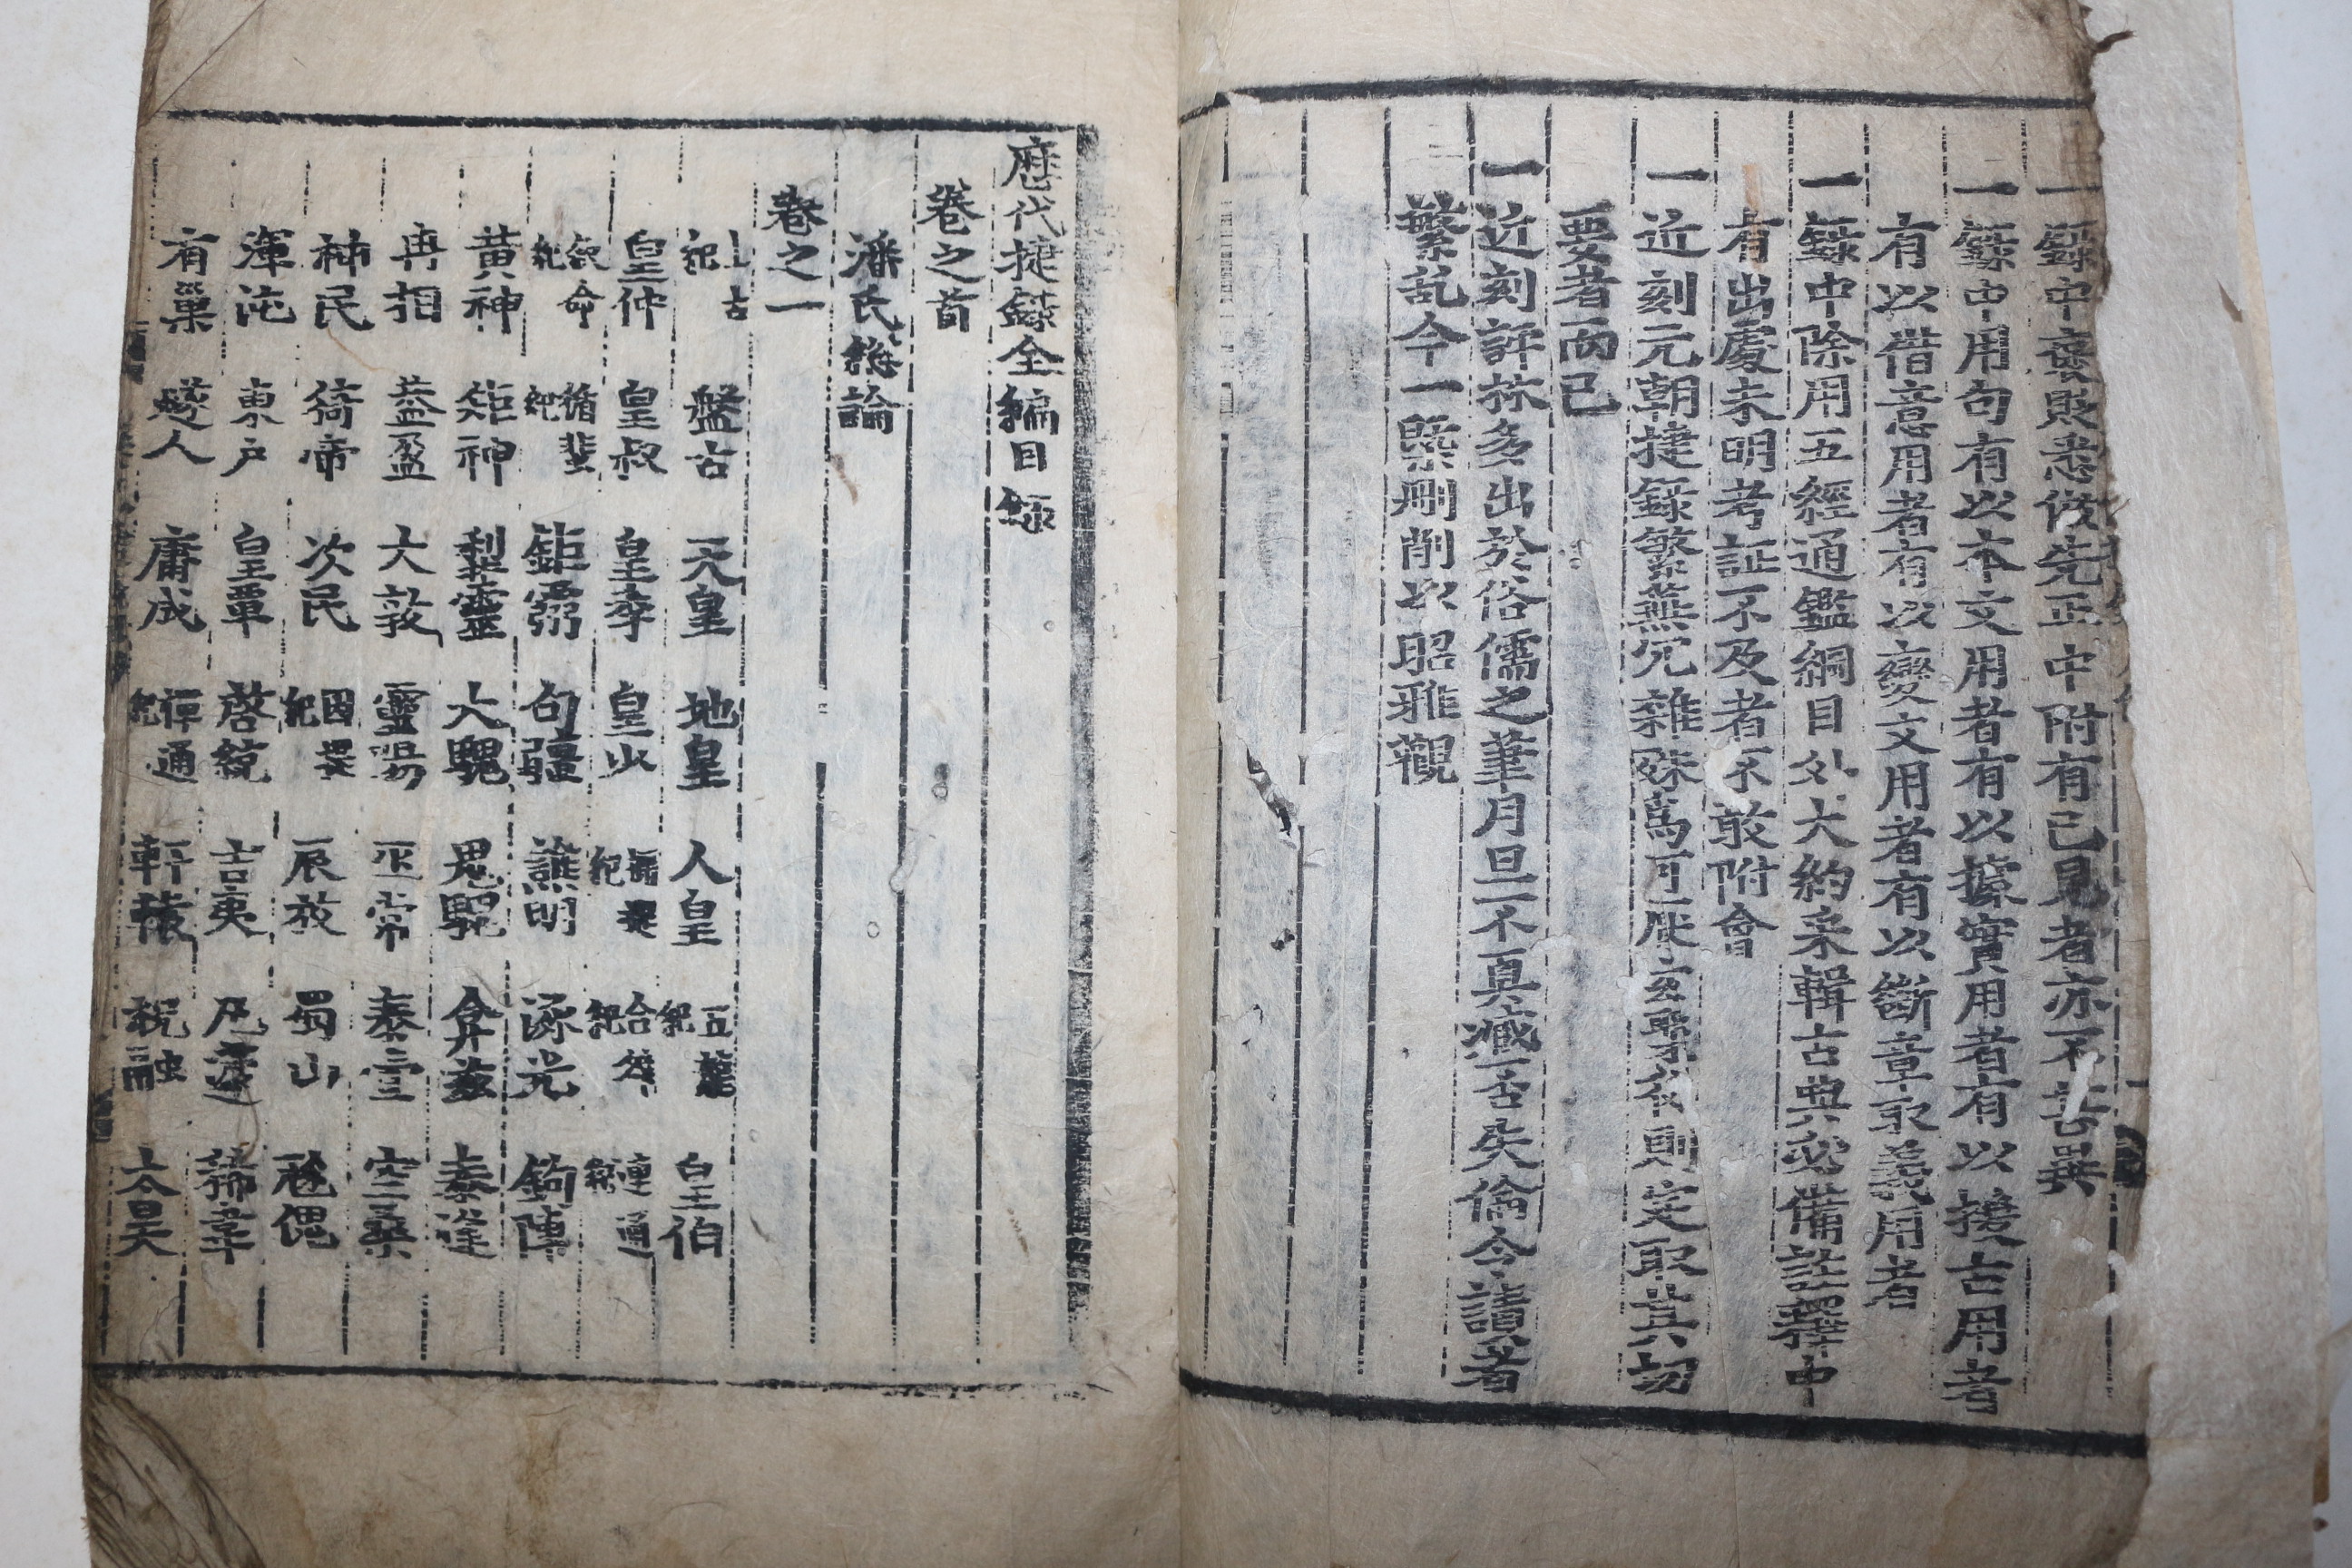 一錄中褒貶悉倣先正中附有己見者亦不甚異
一錄中用句有以本文用者有以據實用者有以援古用者
有以借意用者有以變文用者有以斷章取義用者
一錄中除用五經通鑑綱目外大約采輯古典必備註釋中
有出處未明考証不及者不敢附會
一近刻元朝捷錄繁蕪冗雜殊為可厭玄聚茲則定取其切
要者而已
一近刻評林多出於俗儒之筆月旦不真臧否失倫今請者
繁乱今一槩刪削以昭雅觀
歷代捷錄全編目錄
卷之首
潘氏總論
卷之一
上古紀 盤古 天皇 地皇 人皇 五龍紀 皇伯
皇仲 皇叔 皇季 皇少 攝提紀 合雒紀 連通紀
敘命紀 循蜚紀 鉅靈 句疆 譙明 涿光 鉤陳
黃神 矩神 犁靈 大騩 鬼騩 弇茲 泰逢
冉相 蓋盈 大敦 靈陽 巫常 泰壹 空桑
神民 猗帝 次民 因提紀 辰放 蜀山 䝞傀
渾沌 東戶 皇覃 啓統 吉夷 几蘧 豨韋
有巢 燧人 庸成 禪通紀 軒轅 祝融 太昊